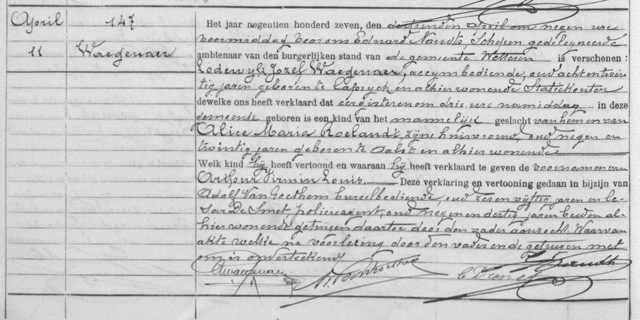 April 147
11 Waegenaer
Het jaar negentien honderd zeven, den dertienden April om negen ure
voormiddag voor ons Eduard Nauts, Schepen gedelegueerde
ambtenaar van den burgerlijken stand van de gemeente Wetteren is verschenen:
Lodewijk Jozef Waegenaer, accijnsbediende, oud achtentwin
tig jaren geboren te Capryck en alhier wonende Statiehouten
dewelke ons heeft verklaard dat eergisteren om drie ure namiddag in deze
gemeente geboren is een kind van het mannelijk geslacht van hem en van
Alice Maria Roelandt, zijne huisvrouw, oud negen en
twintig jaren geboren te Aalst en alhier wonende
Welk kind hij heeft vertoond en waaraan hij heeft verklaard te geven de voornamen van
Arthur Firmin Louis Deze verklaring en vertooning gedaan in bijzijn van
Adolf Van Goethem bureelbediende, oud zes en vijftig jaren en Ce-
sar De Smet, policieagent, oud negen en dertig jaren beiden al-
hier wonende getuigen daartoe door den vader aanzocht. Waarvan
akte welke na voorlezing door den vader en de getuigen met
ons is onderteekend